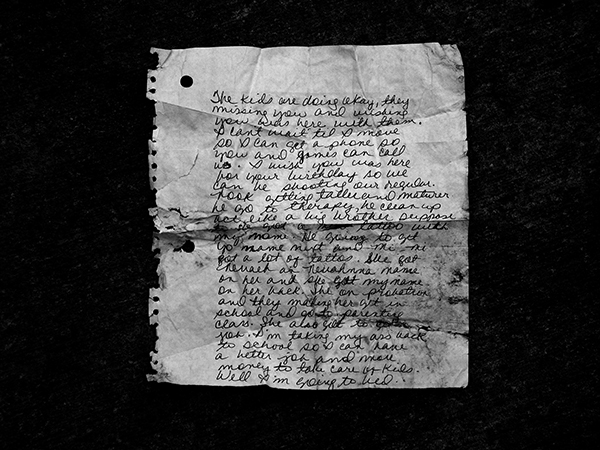 The kids are doing okay, they
missing you and wishing
you was here with them.
I cant wait til I move
so I can get a phone so
you and James can call
us. I wish you was here
for your birthday so we
can be shooting our regular.
getting taller and maturer
he go to therapy, he clean up
act like a big brother suppose
to he got a tattoo with
my name. He going to get
yo name next and
got a lot of tattos. She got
name
on her and she got my name
on her back. She on probation
and they making her sit in
school and go to parenting
class. She also got to
job. I'm taking my ass back
to school so I can have
a better job and more
money to take care of kids.
Well I'm going to bed..